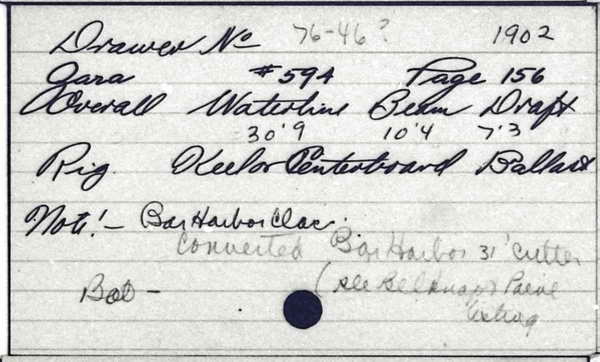 Drawer No 76-46? 1902
Gara #594 Page 156
Overall Waterline Beam Draft
30'9 10'4 7'3
Rig. Keel or Centerboard Ballast
Note!- Bar Harbor Clas.
Converted Bar Harbor 31' cutter
Bob - (see Belknap & Paine